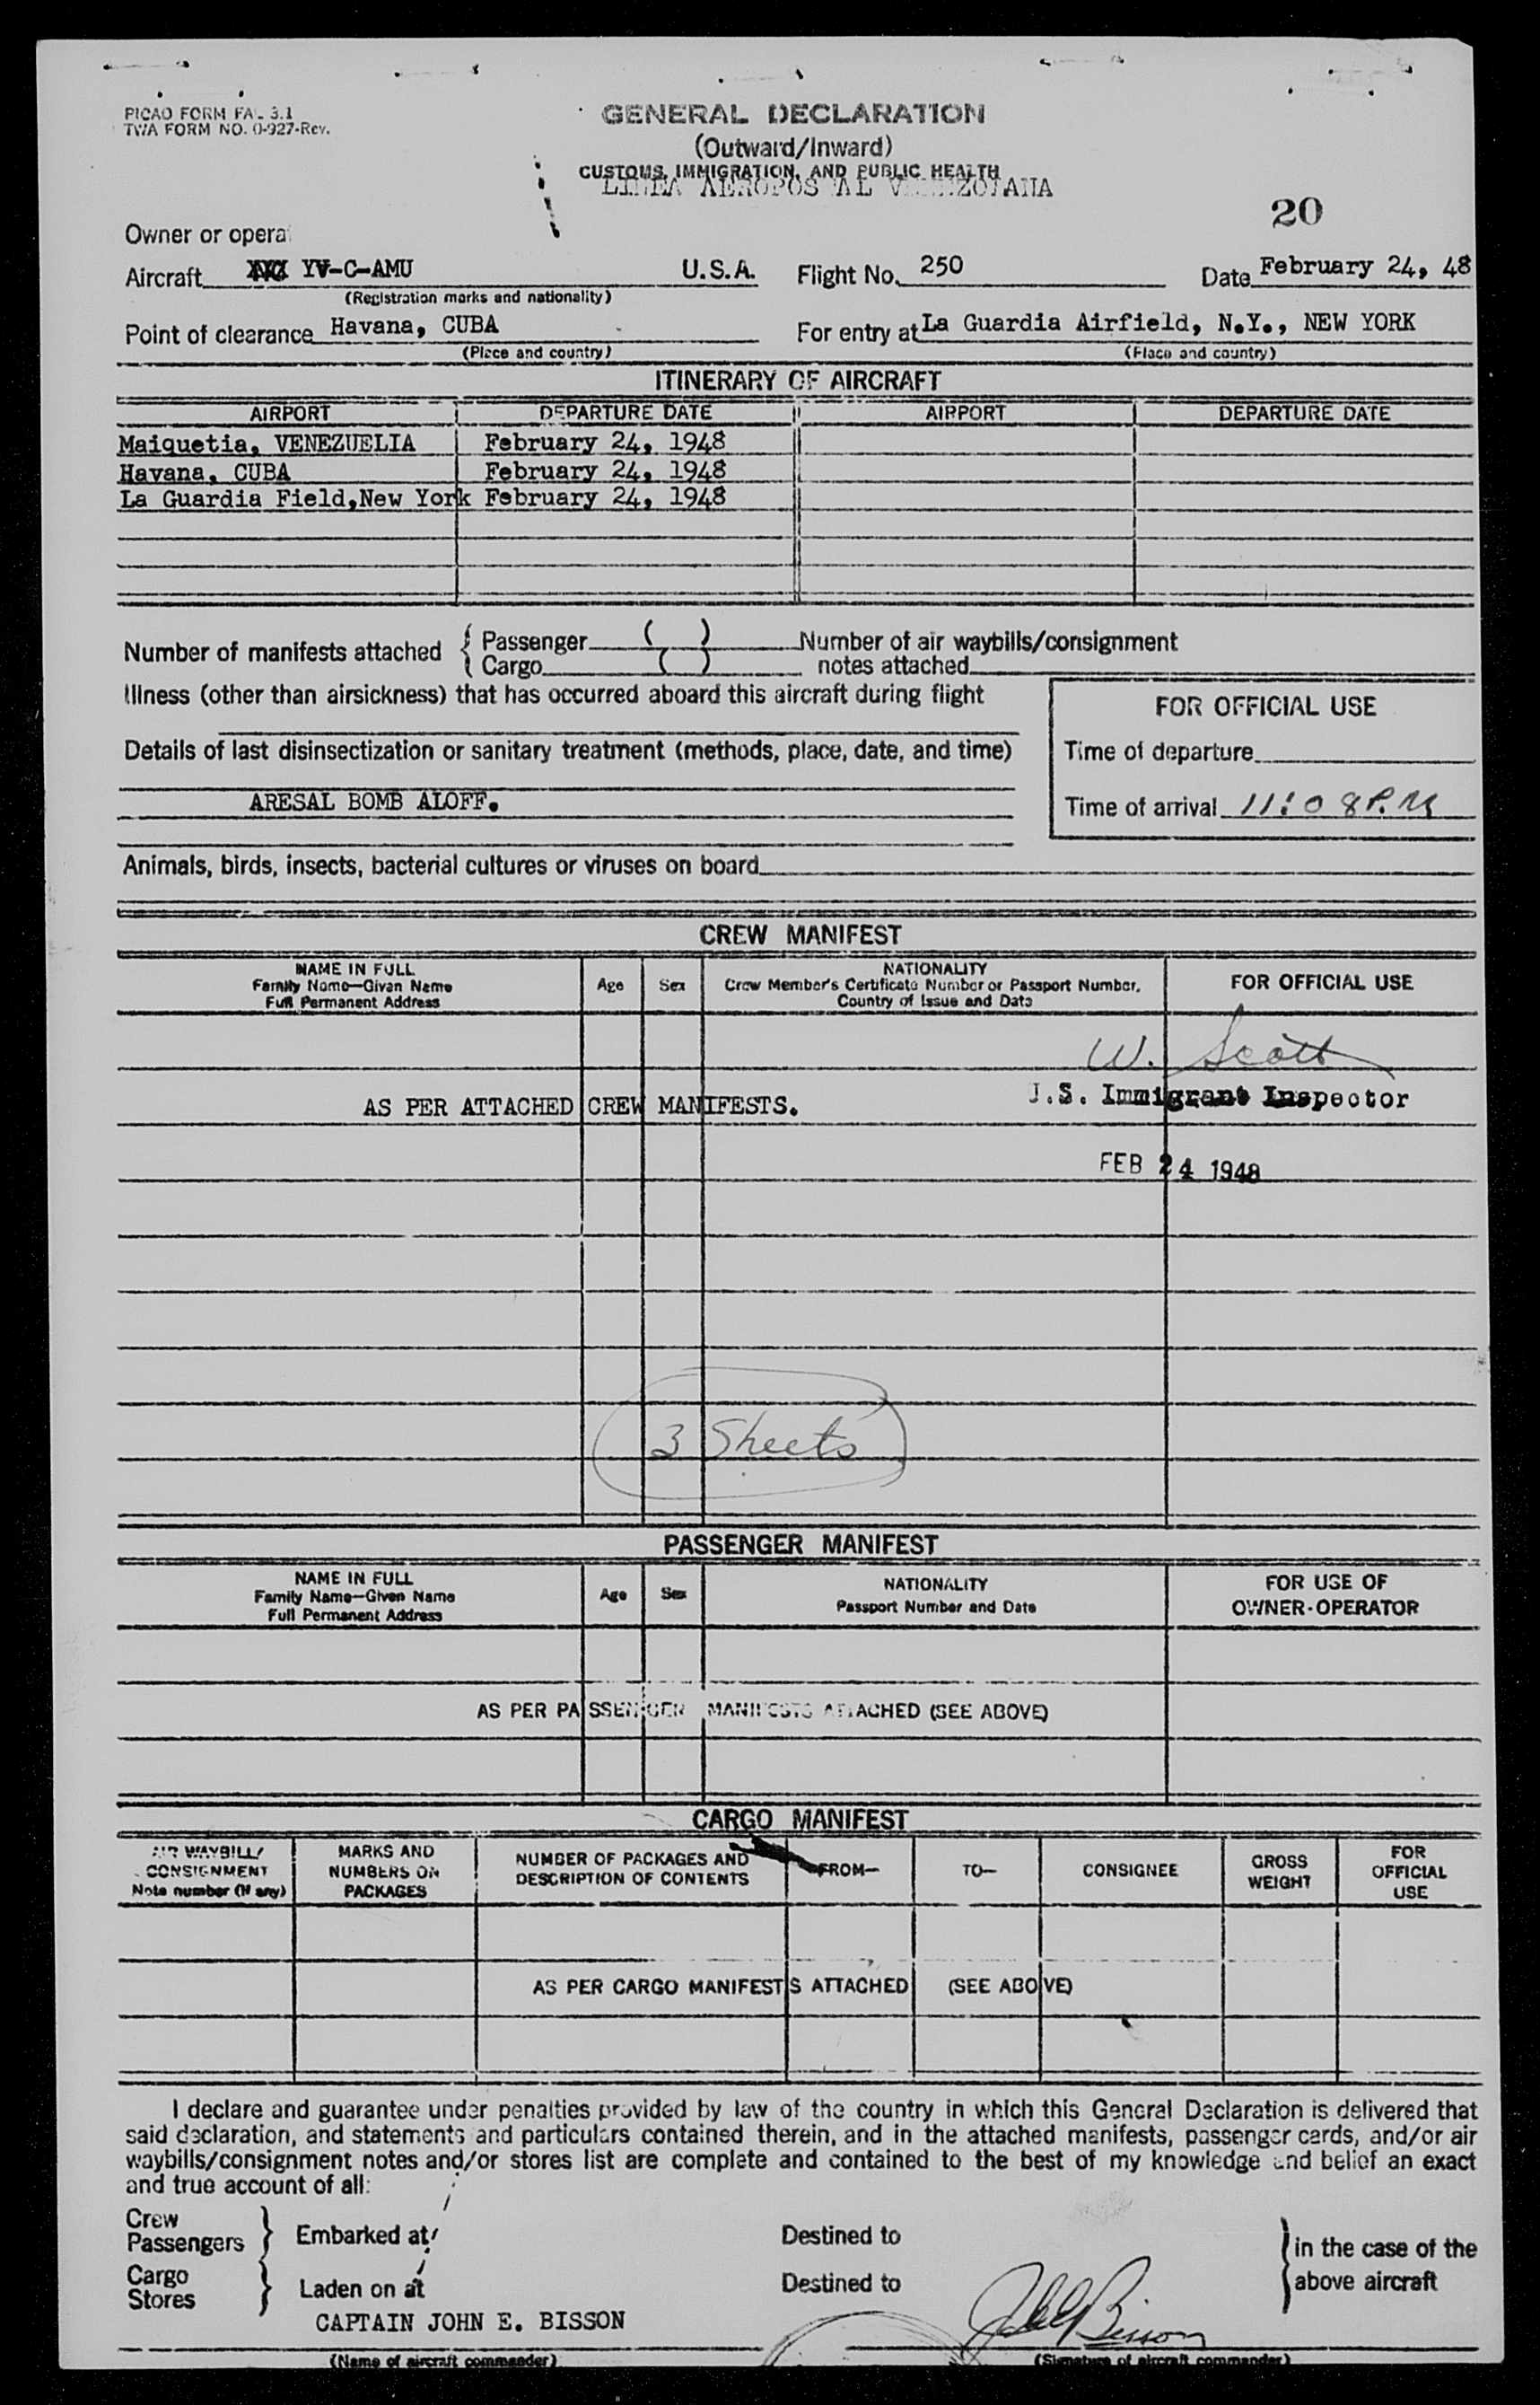 PICAO FORM FAL 3.1
TWA FORM NO. 0-927-Rev.
GENERAL DECLARATION
(Outward/Inward)
CUSTOMS, IMMIGRATION, AND PUBLIC HEALTH
LINEA AEROPOS AL V
20
Owner or opera
Aircraft YV-C-AMU U.S.A. Flight No. 250 Date February 24, 48
(Registration marks and nationality)
Point of clearance Havana, CUBA For entry at La Guardia Airfield, N.Y., NEW YORK
(Place and country) (Place and country)
ITINERARY OF AIRCRAFT
AIRPORT DEPARTURE DATE AIRPORT DEPARTURE DATE
Maiquetia, VENEZUELIA February 24, 1948
Havana, CUBA February 24, 1948
La Guardia Field,New York February 24, 1948
Number of manifests attached { Passenger ( ) Number of air waybills/consignment
Cargo ( ) notes attached
Illness (other than airsickness) that has occurred aboard this aircraft during flight
FOR OFFICIAL USE
Details of last disinsectization or sanitary treatment (methods, place, date, and time)
Time of departure
ARESAL BOMB ALOFF.
Time of arrival 11:08 P.M
Animals, birds, insects, bacterial cultures or viruses on board
CREW MANIFEST
NAME IN FULL
Family Name—Given Name
Full Permanent Address
Age
Sex
NATIONALITY
Crew Member's Certificate Number or Passport Number,
Country of Issue and Date
FOR OFFICIAL USE
W. Scott
AS PER ATTACHED CREW MANIFESTS.
U.S. Immigrant Inspector
FEB 24 1948
3 Sheets
PASSENGER MANIFEST
NAME IN FULL
Family Name—Given Name
Full Permanent Address
Age
Sex
NATIONALITY
Passport Number and Date
FOR USE OF
OWNER-OPERATOR
AS PER PASSENGER MANIFESTS ATTACHED (SEE ABOVE)
CARGO MANIFEST
AIR WAYBILL/
CONSIGNMENT
Note number (If any)
MARKS AND
NUMBERS ON
PACKAGES
NUMBER OF PACKAGES AND
DESCRIPTION OF CONTENTS
FROM—
TO—
CONSIGNEE
GROSS
WEIGHT
FOR
OFFICIAL
USE
AS PER CARGO MANIFESTS ATTACHED (SEE ABOVE)
I declare and guarantee under penalties provided by law of the country in which this General Declaration is delivered that
said declaration, and statements and particulars contained therein, and in the attached manifests, passenger cards, and/or air
waybills/consignment notes and/or stores list are complete and contained to the best of my knowledge and belief an exact
and true account of all:
Crew
Passengers } Embarked at Destined to
Cargo
Stores } Laden on at Destined to
} in the case of the
above aircraft
CAPTAIN JOHN E. BISSON
(Name of aircraft commander) (Signature of aircraft commander)